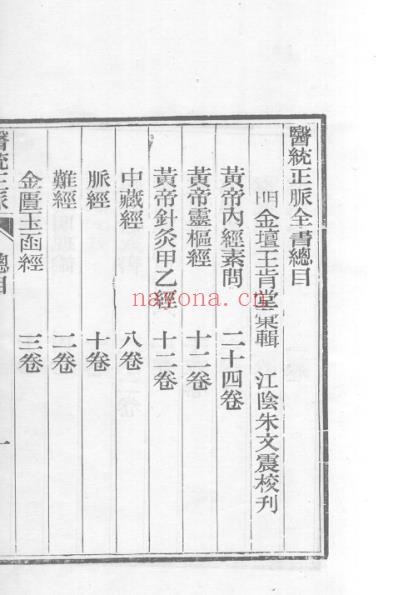 醫統正脈全書總目
明金壇王肯堂彙輯 江陰朱文震校刊
黃帝內經素問 二十四卷
黃帝靈樞經 十二卷
黃帝針灸甲乙經 十二卷
中藏經 八卷
脈經 十卷
難經 二卷
金匱玉函經 三卷
醫統正脈 總目 一
nayona.cn